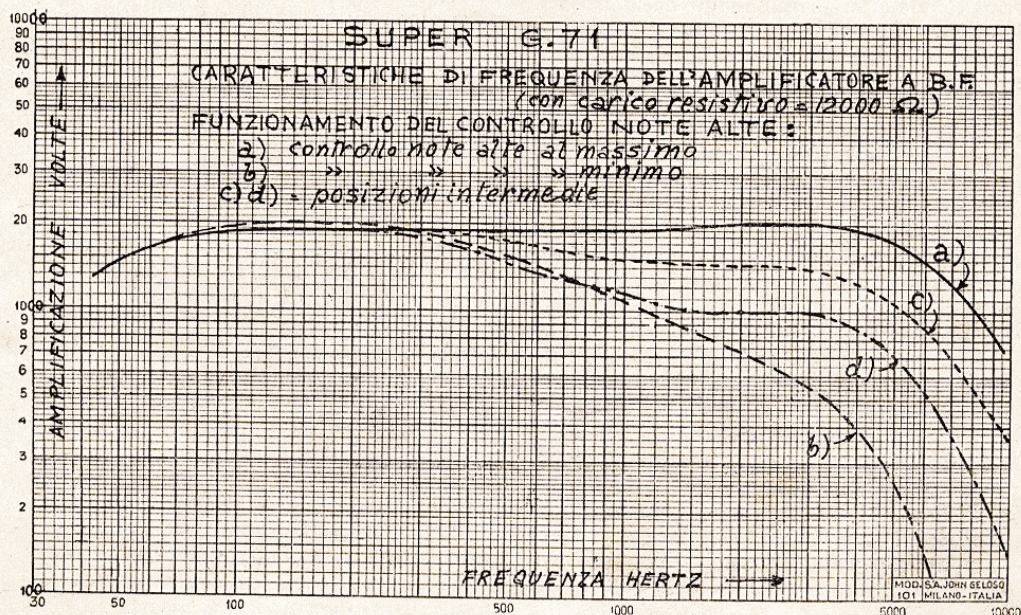 SUPER G.71
CARATTERISTICHE DI FREQUENZA DELL'AMPLIFICATORE A B.F.
(con carico resistivo = 12000 Ω)
FUNZIONAMENTO DEL CONTROLLO NOTE ALTE:
a) controllo note alte al massimo
b) » » » » minimo
c) d) - posizioni intermedie
AMPLIFICAZIONE VOLTE
10000
90
80
70
60
50
40
30
20
1000
9
8
7
6
5
4
3
2
100
a)
c)
d)
b)
FREQUENZA HERTZ
MOD. S.A. JOHN GELOSO
101 MILANO-ITALIA
30 50 100 500 1000 5000 10000